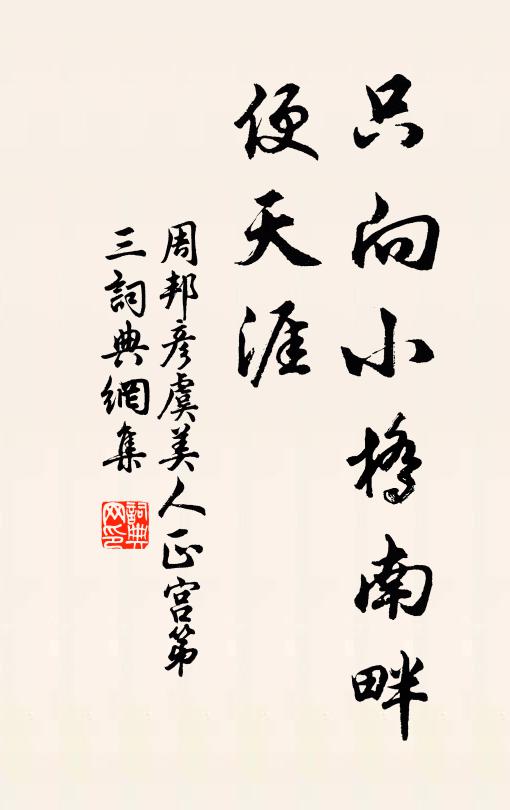 只向小橋南畔
便天涯
周邦彥虞美人正宮第
三詞典網集
詞典
网印